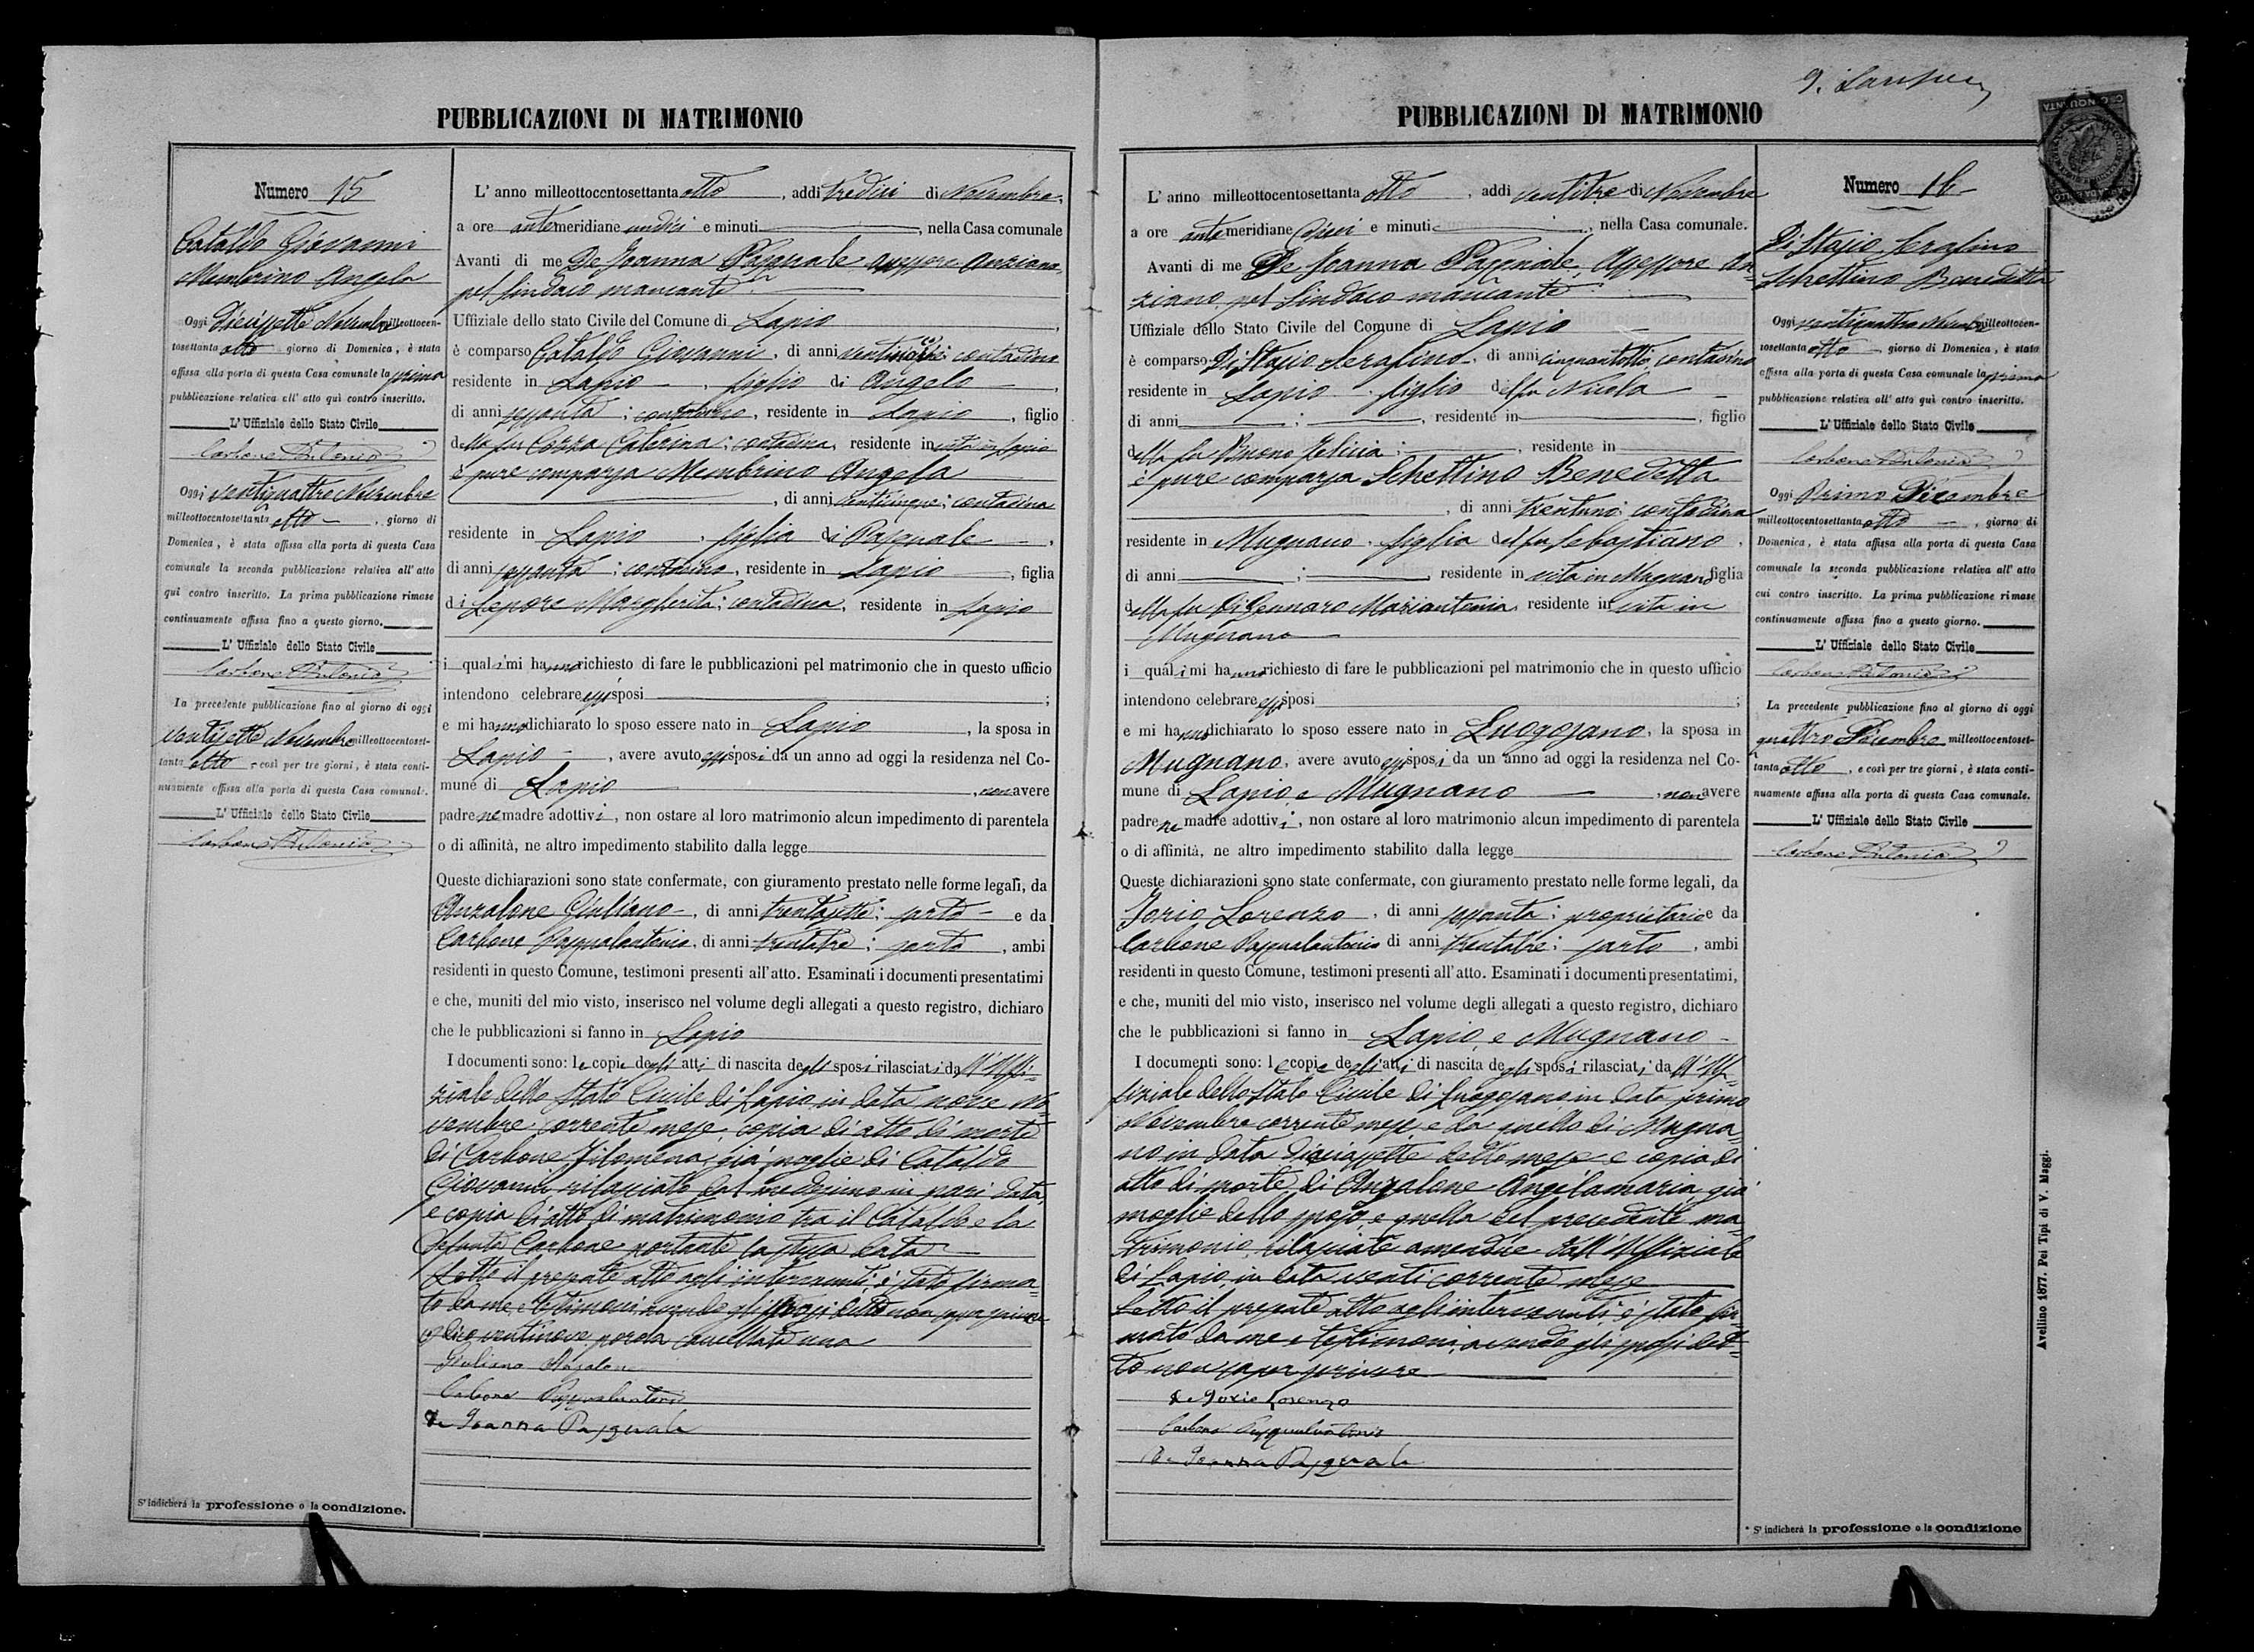 PUBBLICAZIONI DI MATRIMONIO
Numero 15
Cataldo Giovanni
Membrino Angela
Oggi Diecissette Novembre milleottocen-
tosettanta otto giorno di Domenica, è stata
affissa alla porta di questa Casa comunale la prima
pubblicazione relativa all' atto quì contro inscritto.
L' Uffiziale dello Stato Civile
Carbone Antonio
Oggi ventiquattro Novembre
milleottocentosettanta otto , giorno di
Domenica, è stata affissa alla porta di questa Casa
comunale la seconda pubblicazione relativa all' atto
qui contro inscritto. La prima pubblicazione rimase
continuamente affissa fino a questo giorno.
L' Uffiziale dello Stato Civile
Carbone Antonio
La precedente pubblicazione fino al giorno di oggi
ventisette Novembre milleottocentoset-
tanta otto e così per tre giorni, è stata conti-
nuamente affissa alla porta di questa Casa comunale.
L' Uffiziale dello Stato Civile
Carbone Antonio
S' indicherà la professione o la condizione.
L' anno milleottocentosettanta otto , addì tredici di Novembre,
a ore antemeridiane undici e minuti , nella Casa comunale
Avanti di me De Joanna Pasquale Assessore Anziano,
pel Sindaco mancante
Uffiziale dello stato Civile del Comune di Lapio ,
è comparso Cataldo Giovanni, di anni ; contadino
residente in Lapio , figlio di Angelo ,
di anni sessanta ; contadino, residente in Lapio , figlio
della fu Cozza Caterina; contadina, residente in vita in Lapio
è pure comparsa Membrino Angela
, di anni venticinque; contadina
residente in Lapio , figlia di Pasquale ,
di anni sessanta ; contadino, residente in Lapio , figlia
di Lepore Margherita; contadina, residente in Lapio
i quali mi hanno richiesto di fare le pubblicazioni pel matrimonio che in questo ufficio
intendono celebrare essi sposi ;
e mi hanno dichiarato lo sposo essere nato in Lapio , la sposa in
Lapio , avere avuto essi sposi da un anno ad oggi la residenza nel Co-
mune di Lapio , non avere
padre ne madre adottivi, non ostare al loro matrimonio alcun impedimento di parentela
o di affinità, ne altro impedimento stabilito dalla legge
Queste dichiarazioni sono state confermate, con giuramento prestato nelle forme legali, da
Anzalone Giuliano , di anni trentasette; sarto e da
Carbone Pasqualantonio, di anni trentatre; sarto , ambi
residenti in questo Comune, testimoni presenti all'atto. Esaminati i documenti presentatimi
e che, muniti del mio visto, inserisco nel volume degli allegati a questo registro, dichiaro
che le pubblicazioni si fanno in Lapio
I documenti sono: le copie degli atti di nascita degli sposi rilasciati da ll'Uffi-
ziale dello Stato Civile di Lapio in data nove No-
vembre corrente mese, copia di atto di morte
di Carbone Filomena, già moglie di Cataldo
Giovanni rilasciato dal medesimo in pari data,
e copia di atto di matrimonio tra il Cataldo e la
defunta Carbone portante la stessa data
Letto il presente atto agli intervenuti, è stato firma-
to da me e testimoni avendo gli sposi detto non saper scrivere
dico ventinove parola cancellata una
Giuliano Anzalone
Carbone Pasqualantonio
De Joanna Pasquale
PUBBLICAZIONI DI MATRIMONIO
L' anno milleottocentosettanta otto , addì ventitre di Novembre
a ore antemeridiane dieci e minuti , nella Casa comunale.
Avanti di me De Joanna Pasquale, Assessore An-
ziano pel Sindaco mancante
Uffiziale dello Stato Civile del Comune di Lapio
è comparso Di Stasio Serafino, di anni cinquantotto, contadino
residente in Lapio , figlio del fu Nicola
di anni ; , residente in , figlio
della fu Buono Felicia ; , residente in
è pure comparsa Schettino Benedetta
, di anni trentuno; contadina
residente in Mugnano, figlia del fu Sebastiano ,
di anni ; , residente in vita in Mugnano figlia
della fu Di Gennaro Mariantonia, residente in vita in
Mugnano
i quali mi hanno richiesto di fare le pubblicazioni pel matrimonio che in questo ufficio
intendono celebrare essi sposi ;
e mi hanno dichiarato lo sposo essere nato in Luogosano, la sposa in
Mugnano, avere avuto essi sposi da un anno ad oggi la residenza nel Co-
mune di Lapio e Mugnano , non avere
padre ne madre adottivi, non ostare al loro matrimonio alcun impedimento di parentela
o di affinità, ne altro impedimento stabilito dalla legge
Queste dichiarazioni sono state confermate, con giuramento prestato nelle forme legali, da
Iorio Lorenzo , di anni sessanta; proprietario e da
Carbone Pasqualantonio di anni trentatre; sarto , ambi
residenti in questo Comune, testimoni presenti all'atto. Esaminati i documenti presentatimi,
e che, muniti del mio visto, inserisco nel volume degli allegati a questo registro, dichiaro
che le pubblicazioni si fanno in Lapio e Mugnano
I documenti sono: le copie degli atti di nascita degli sposi rilasciati da ll'Uf-
fiziale dello Stato Civile di Luogosano in data primo
Novembre corrente mese e da quello di Mugna-
no in data diciassette detto mese e copia di
atto di morte di Anzalone Angelamaria già
moglie dello sposo, e quella del precedente ma-
trimonio, rilasciate amendue dall'Uffiziale
di Lapio in data venti corrente mese
Letto il presente atto agli intervenuti è stato fir-
mato da me e testimoni, avendo gli sposi det-
to non saper scrivere
De Iorio Lorenzo
Carbone Pasqualantonio
De Joanna Pasquale
Numero 16
Di Stasio Serafino
Schettino Benedetta
Oggi ventiquattro Novembre milleottocen-
tosettanta otto , giorno di Domenica, è stata
affissa alla porta di questa Casa comunale la prima
pubblicazione relativa all' atto quì contro inscritto.
L' Uffiziale dello Stato Civile
Carbone Antonio
Oggi Primo Dicembre
milleottocentosettanta otto , giorno di
Domenica, è stata affissa alla porta di questa Casa
comunale la seconda pubblicazione relativa all' atto
cui contro inscritto. La prima pubblicazione rimase
continuamente affissa fino a questo giorno.
L' Uffiziale dello Stato Civile
Carbone Antonio
La precedente pubblicazione fino al giorno di oggi
quattro Dicembre milleottocentoset-
tanta otto , e così per tre giorni, è stata conti-
nuamente affissa alla porta di questa Casa comunale.
L' Uffiziale dello Stato Civile
Carbone Antonio
* S' indicherà la professione o la condizione
Avellino 1877. Pei Tipi di V. Maggi.